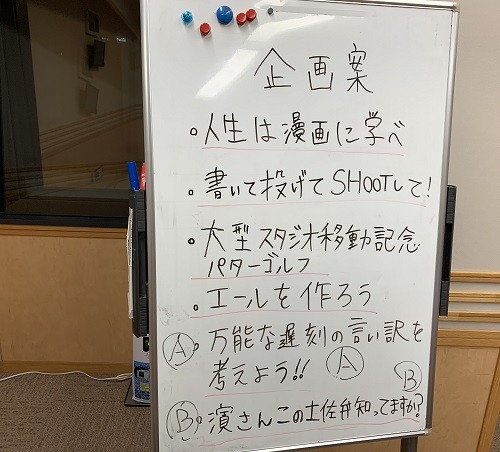 企画案
。人生は漫画に学べ
。書いて投げてSHOOTして!
。大型スタジオ移動記念
パターゴルフ
。エールを作ろう
Ⓐ。万能な遅刻の言い訳を
考えよう!! Ⓐ
Ⓑ。濱さんこの土佐弁知ってますか? Ⓑ